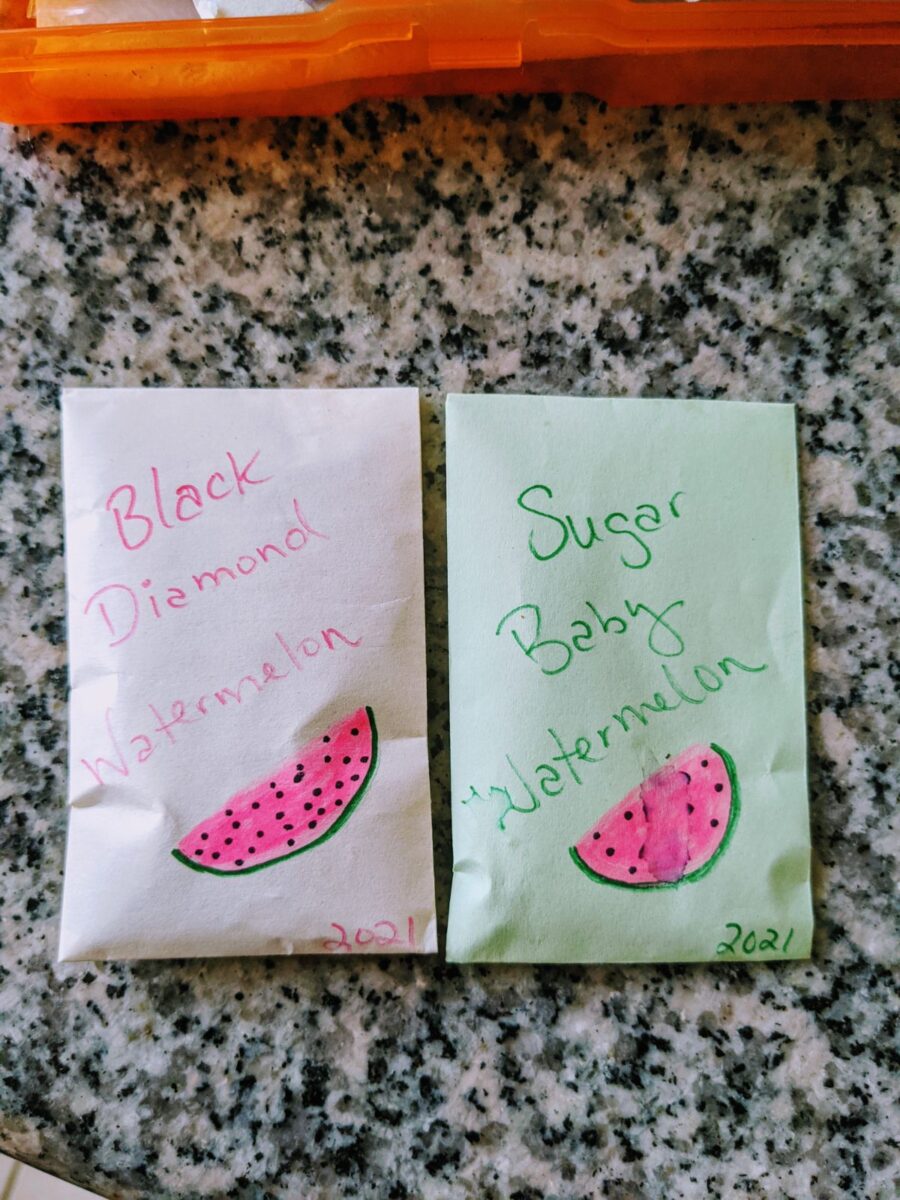 Black
Diamond
Watermelon
2021
Sugar
Baby
Watermelon
2021